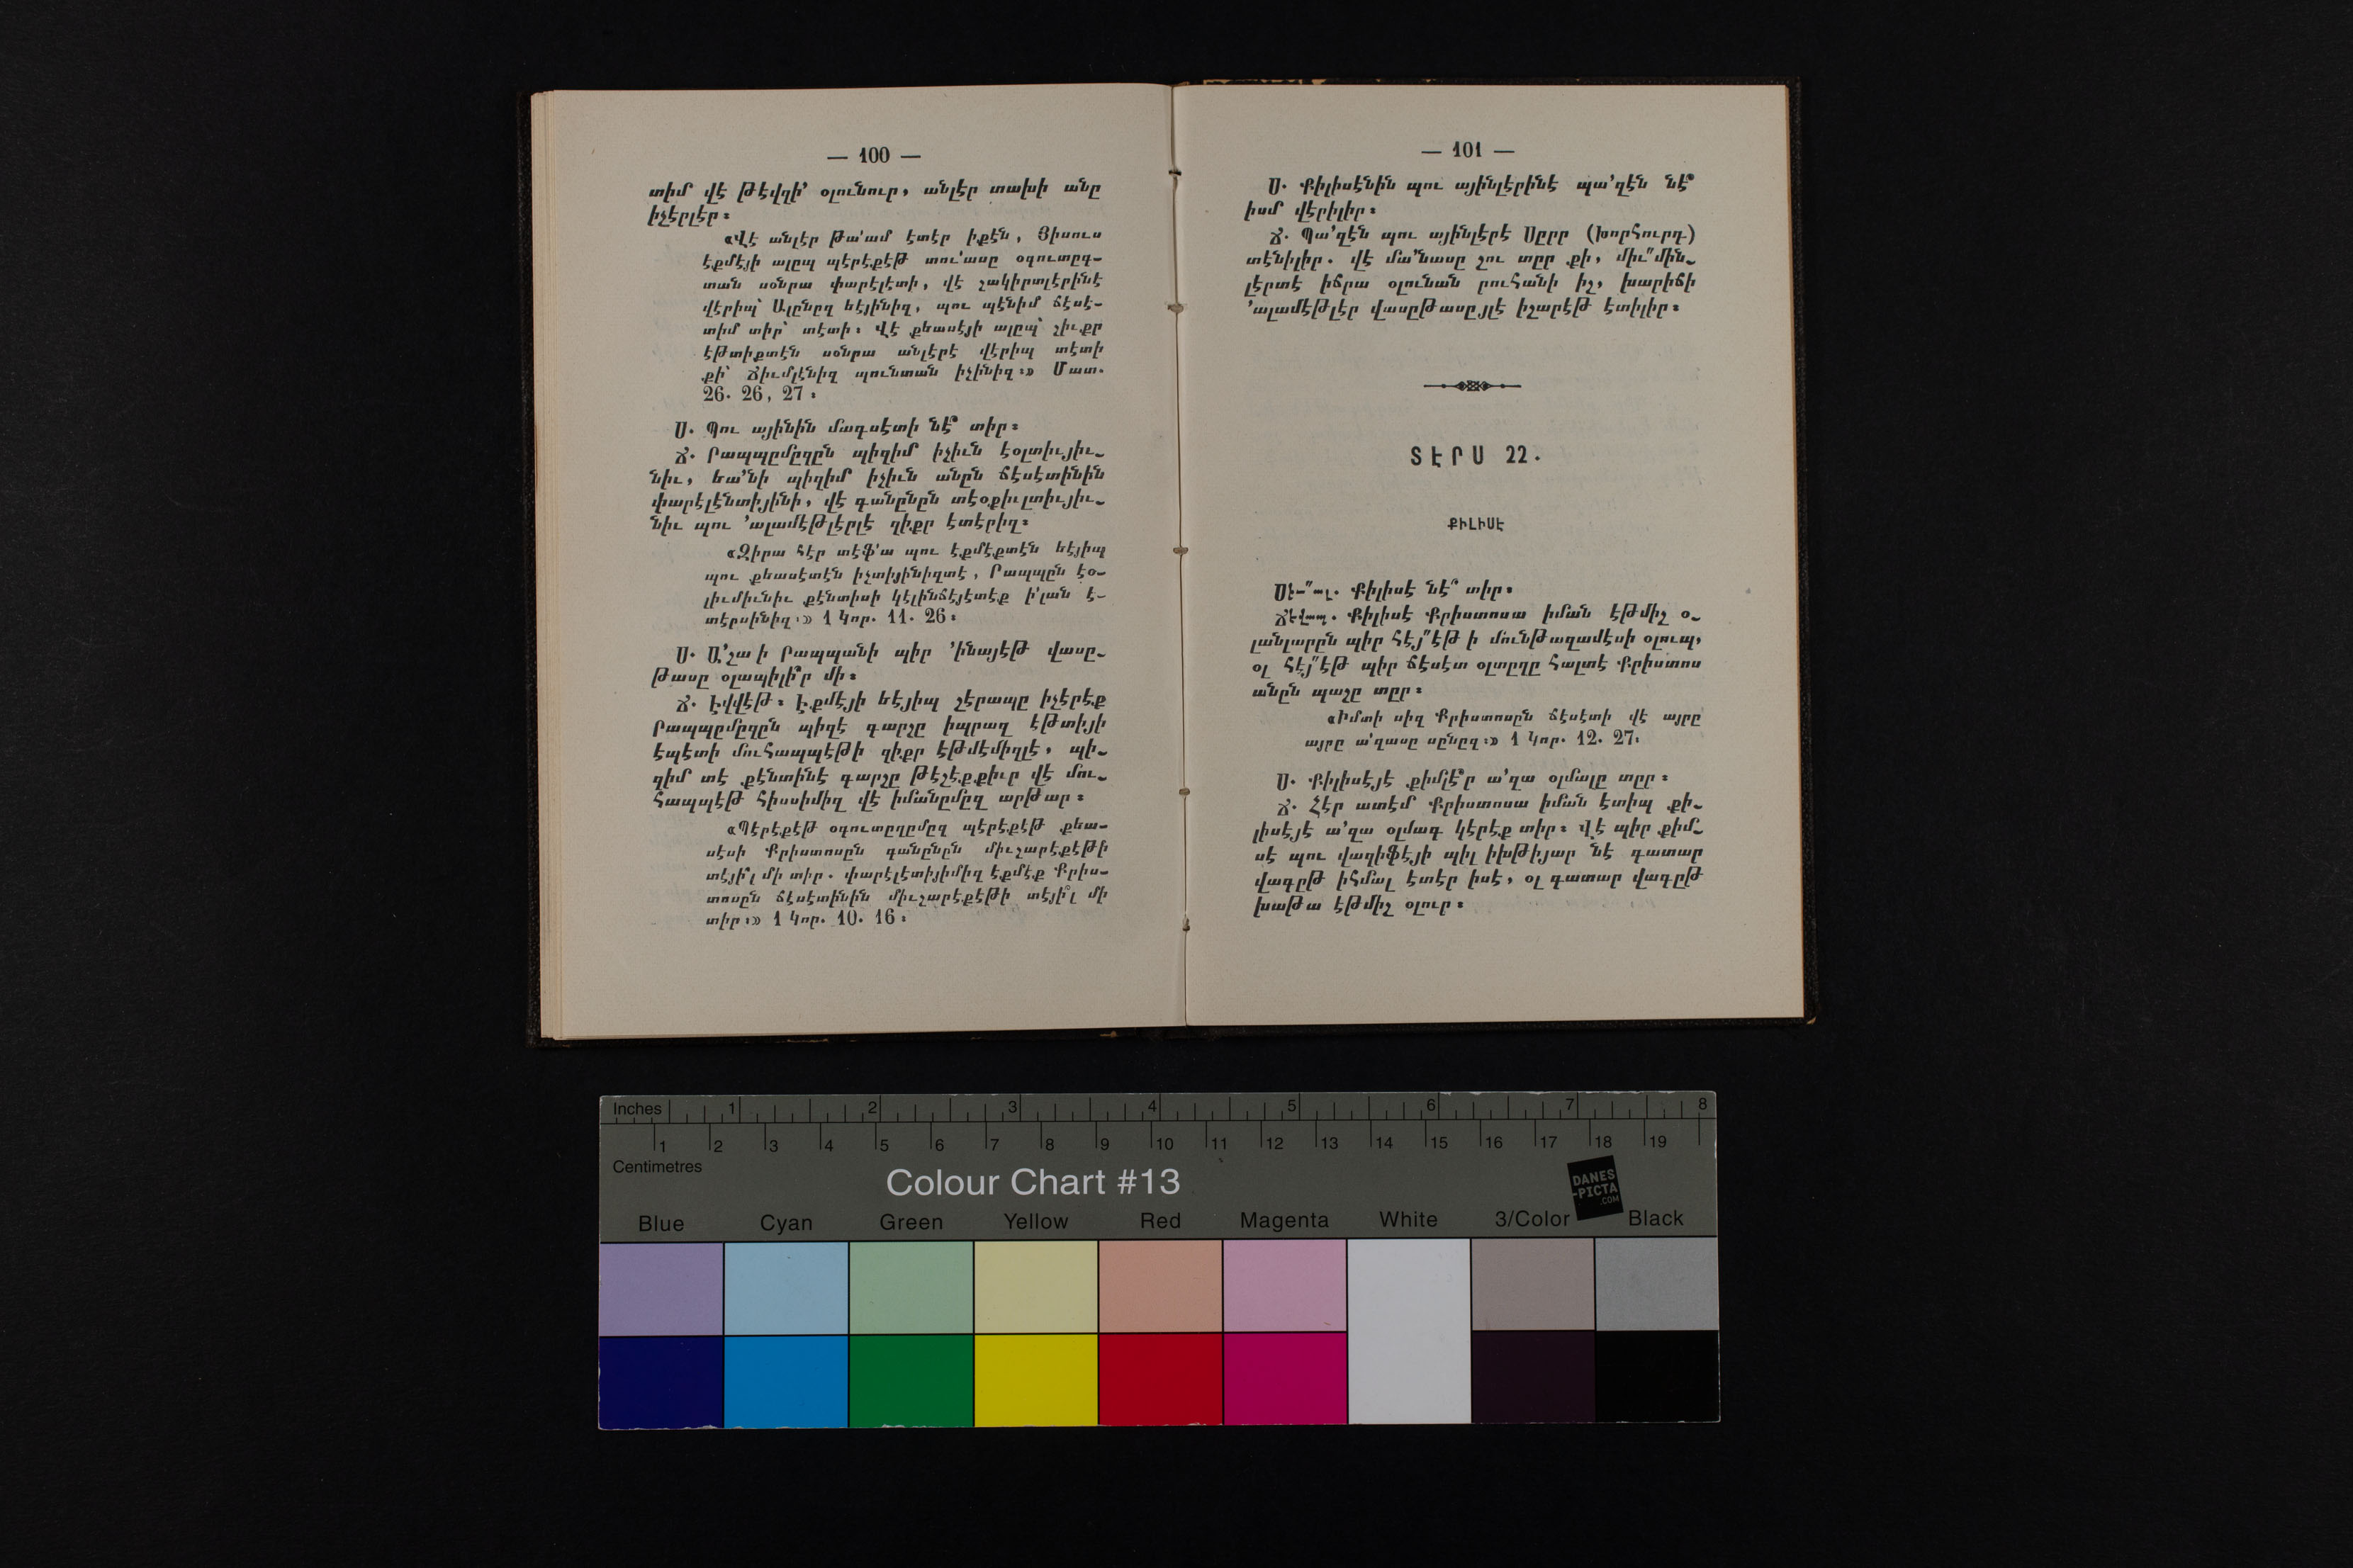 — 100 —
տիմ վէ թէվզի՛ օլունուր, անլէր տախի անը
իչէրլէր։
«Վէ անլէր թա՛ամ էտէր իքէն, Յիսուս
էքմէյի ալըպ պէրէքէթ տու՛ասը օգուտըգ-
տան սօնրա փարէլէտի, վէ շակիրտլէրինէ
վէրիպ՝ Ալընըզ եէյինիզ, պու պէնիմ ճէսէ-
տիմ տիր՝ տէտի։ Վէ քեասէյի ալըպ՝ շիւքր
էթտիքտէն սօնրա անլէրէ վէրիպ տէտի
քի՝ Ճիւմլէնիզ պունտան իչինիզ։» Մատ.
26. 26, 27։
Ս. Պու այինին մագսէտի նէ՞ տիր։
Ճ. Րապպըմըզըն պիզիմ իչիւն էօլտիւյիւ-
նիւ, եա՛նի պիզիմ իչիւն անըն ճէսէտինին
փարէլէնտիյինի, վէ գանընըն տէօքիւլտիւյիւ-
նիւ պու ՛ալամէթլէրլէ զիքր էտէրիզ։
«Զիրա հէր տէֆ՛ա պու էքմէքտէն եէյիպ
պու քեասէտէն իչտիյինիզտէ, Րապպըն էօ-
լիւմիւնիւ քէնտիսի կէլինճէյէտէք ի՛լան է-
տէրսինիզ։» 1 Կոր. 11. 26։
Ս. Ա՛շա ի Րապպանի պիր ՛ինայէթ վասը-
թասը օլապիլի՞ր մի։
Ճ. Էվվէթ։ Էքմէյի եէյիպ շէրապը իչէրէք
Րապպըմըզըն պիզէ գարշը իպրազ էթտիյի
էպէտի մուհապպէթի զիքր էթմէմիզլէ, պի-
զիմ տէ քէնտինէ գարշը թէշէքքիւր վէ մու-
հապպէթ հիսսիմիզ վէ իմանըմըզ արթար։
«Պէրէքէթ օգուտըղըմըզ պէրէքէթ քեա-
սէսի Քրիստոսըն գանընըն միւշարէքէթի
տէյի՞լ մի տիր. փարէլէտիյիմիզ էքմէք Քրիս-
տոսըն ճէսէտինին միւշարէքէթի տէյի՞լ մի
տիր։» 1 Կոր. 10. 16։
— 101 —
Ս. Քիլիսէնին պու այինլէրինէ պա՛զէն նէ՞
իսմ վէրիլիր։
Ճ. Պա՛զէն պու այինլէրէ Սըրր (խորհուրդ)
տէնիլիր. վէ մա՛նասը շու տըր քի, միւ՞մին-
լէրտէ իճրա օլունան րուհանի իշ, խարիճի
՛ալամէթլէր վասըթասըյլէ իշարէթ էտիլիր։
ՏԷՐՍ 22.
ՔԻԼԻՍԷ
Սէւ՞ալ. Քիլիսէ նէ՞ տիր։
Ճէվապ. Քիլիսէ Քրիստոսա իման էթմիշ օ-
լանլարըն պիր հէյ՞էթ ի մունթազամէսի օլուպ,
օլ հէյ՞էթ պիր ճէսէտ օլտըղը հալտէ Քրիստոս
անըն պաշը տըր։
«Իմտի սիզ Քրիստոսըն ճէսէտի վէ այրը
այրը ա՛զասը սընըզ։» 1 Կոր. 12. 27։
Ս. Քիլիսէյէ քիմլէ՞ր ա՛զա օլմալը տըր։
Ճ. Հէր ատէմ Քրիստոսա իման էտիպ քի-
լիսէյէ ա՛զա օլմագ կէրէք տիր։ Վէ պիր քիմ-
սէ պու վազիֆէյի պիլ իխթիյար նէ գատար
վագըթ իհմալ էտէր իսէ, օլ գատար վագըթ
խաթա էթմիշ օլուր։
Inches 1 2 3 4 5 6 7 8
1 2 3 4 5 6 7 8 9 10 11 12 13 14 15 16 17 18 19
Centimetres
Colour Chart #13
DANES
-PICTA
.COM
Blue Cyan Green Yellow Red Magenta White 3/Color Black